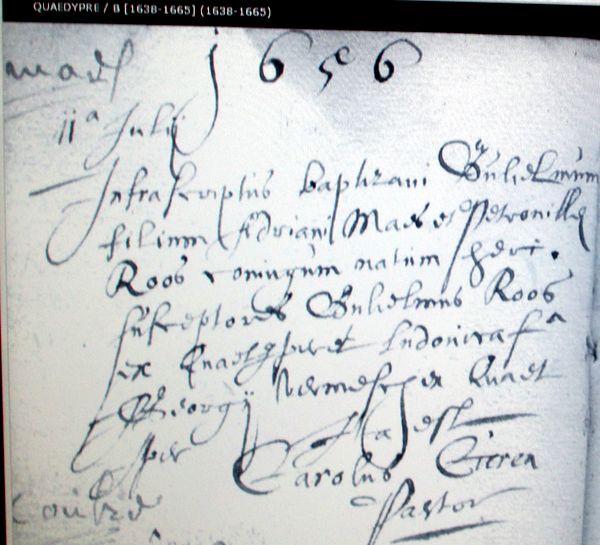 QUAEDYPRE / B [1638-1665] (1638-1665)
maes 1656
11ª Julij
Infrascriptus baptizavi Gulielmum
filium Adriani Maes et Petronillę
Roos coniugum natum heri.
susceptores Gulielmus Roos
ex Quaetypre et Ludovica fª
Georgij Vermesch ex Quaet
per
Carolus
Pastor